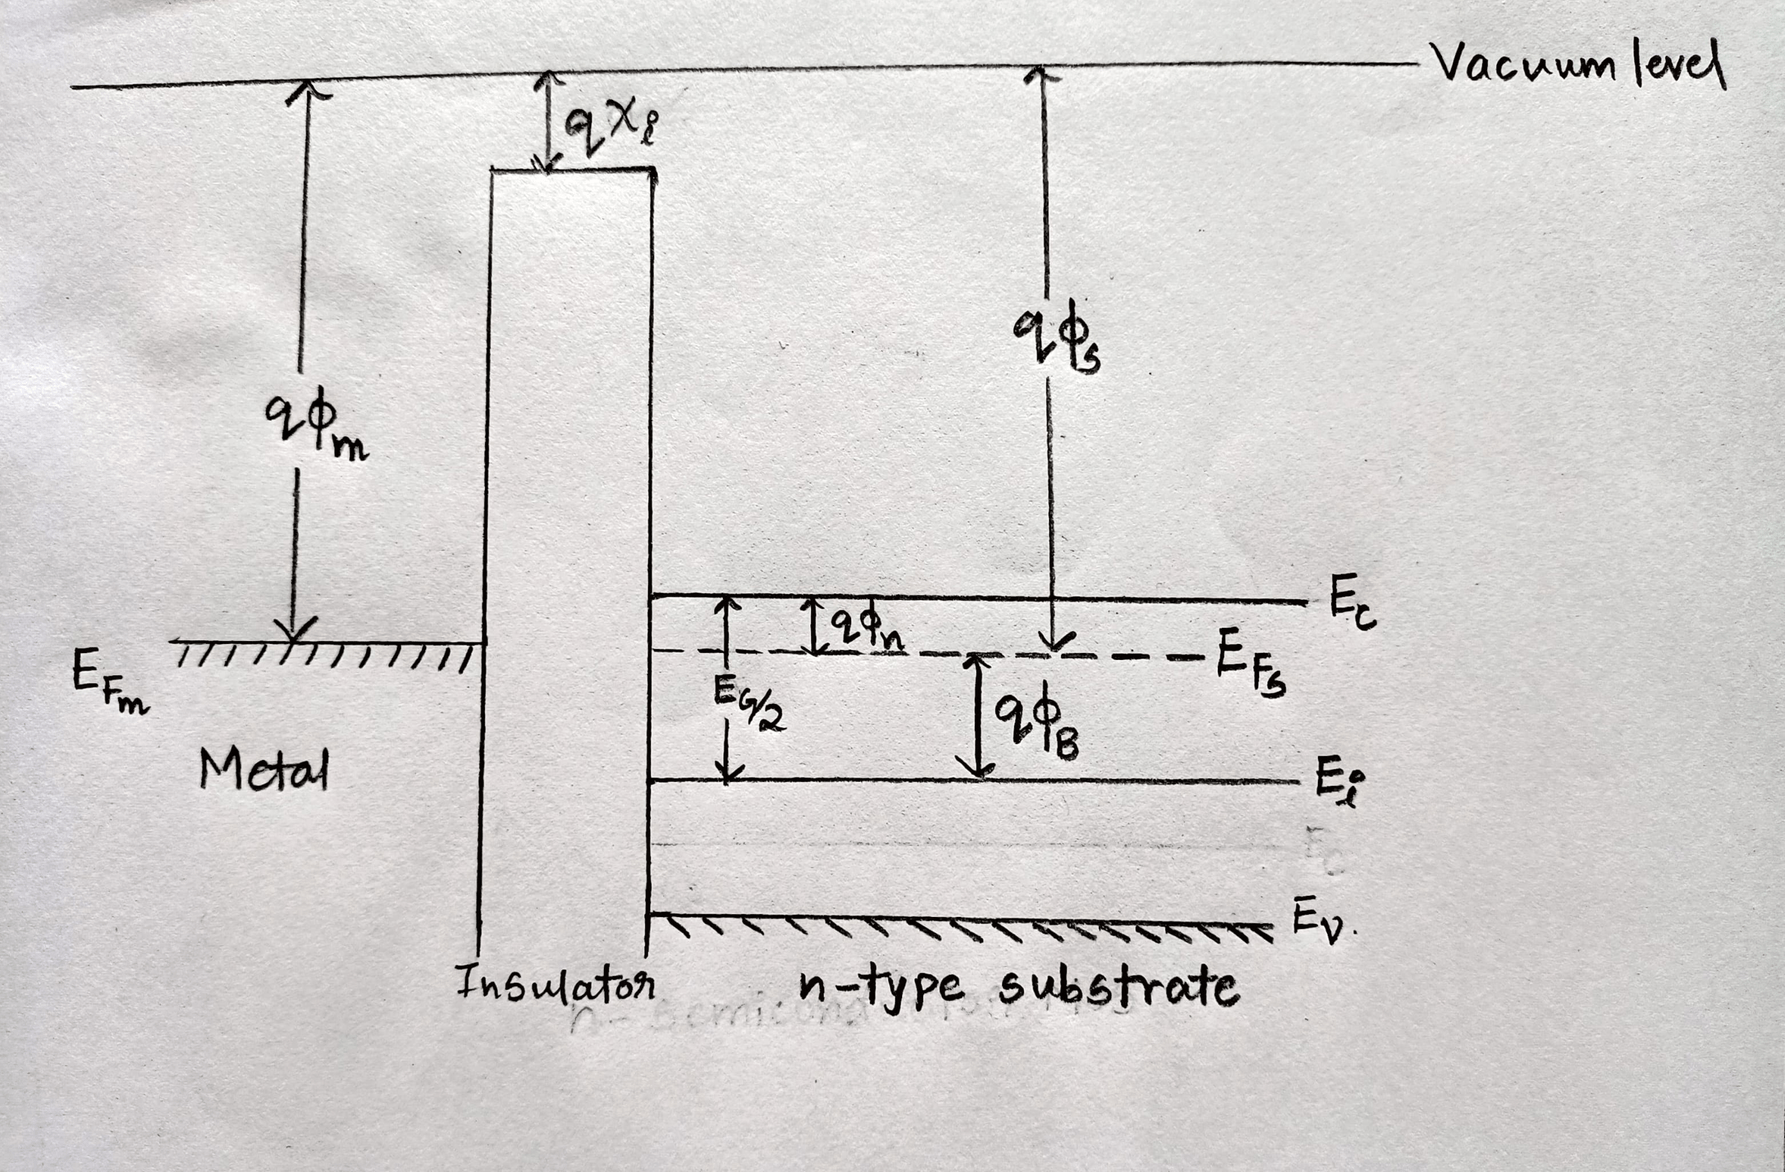 Vacuum level
qχi
qϕs
qϕm
Ec
qϕn
EFs
EFm
EG/2
qϕB
Metal
Ei
Ev.
Insulator
n-type substrate